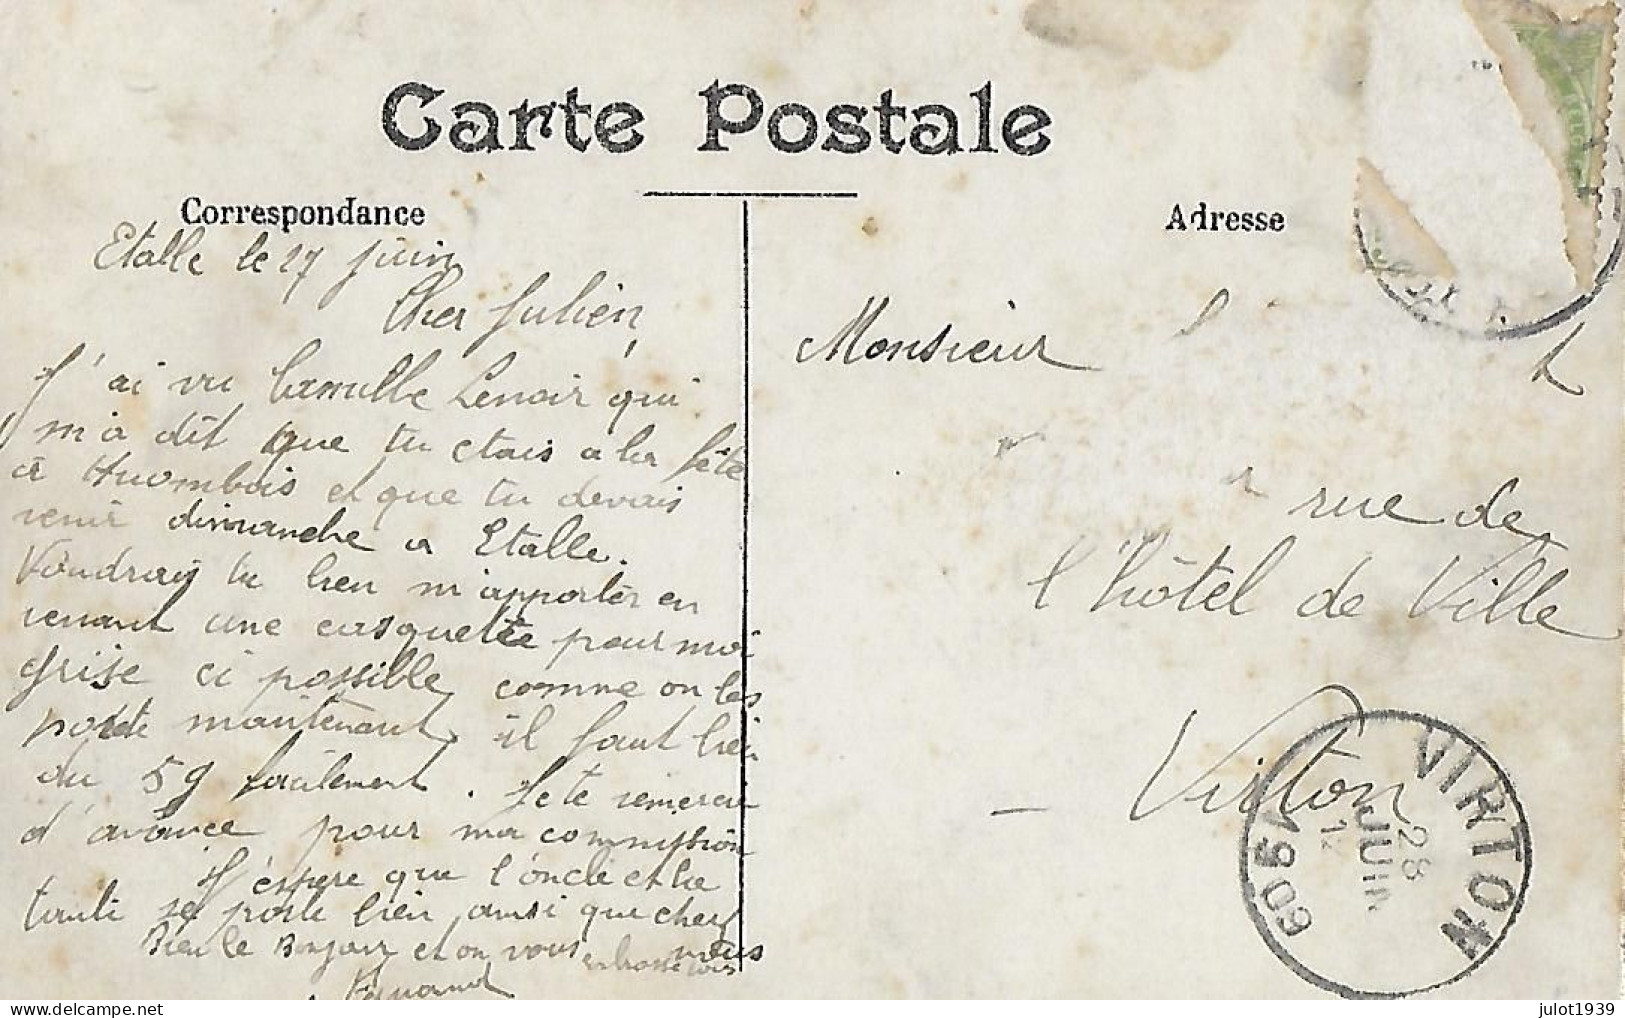 Carte Postale
Correspondance
Etalle le 27 juin
Cher Julien,
J'ai vu Camille Lenoir qui
m'a dit que tu etais a la fête
à Huombois et que tu devais
venir dimanche a Etalle.
Voudrais tu bien m'apporter en
venant une casquette pour moi
grise ci possible, comme on les
porte maintenant, il faut bien
du 59 facilement. Je te remercie
d'avance pour ma commission
J'éspere que l'oncle et la
tante se porte bien, ainsi que chez nous
Bien le Bonjour et on vous embrasse tous
Fernand
Adresse
Monsieur
rue de
l'hôtel de Ville
Virton
VIRTON
28
JUIN
12
julot1939